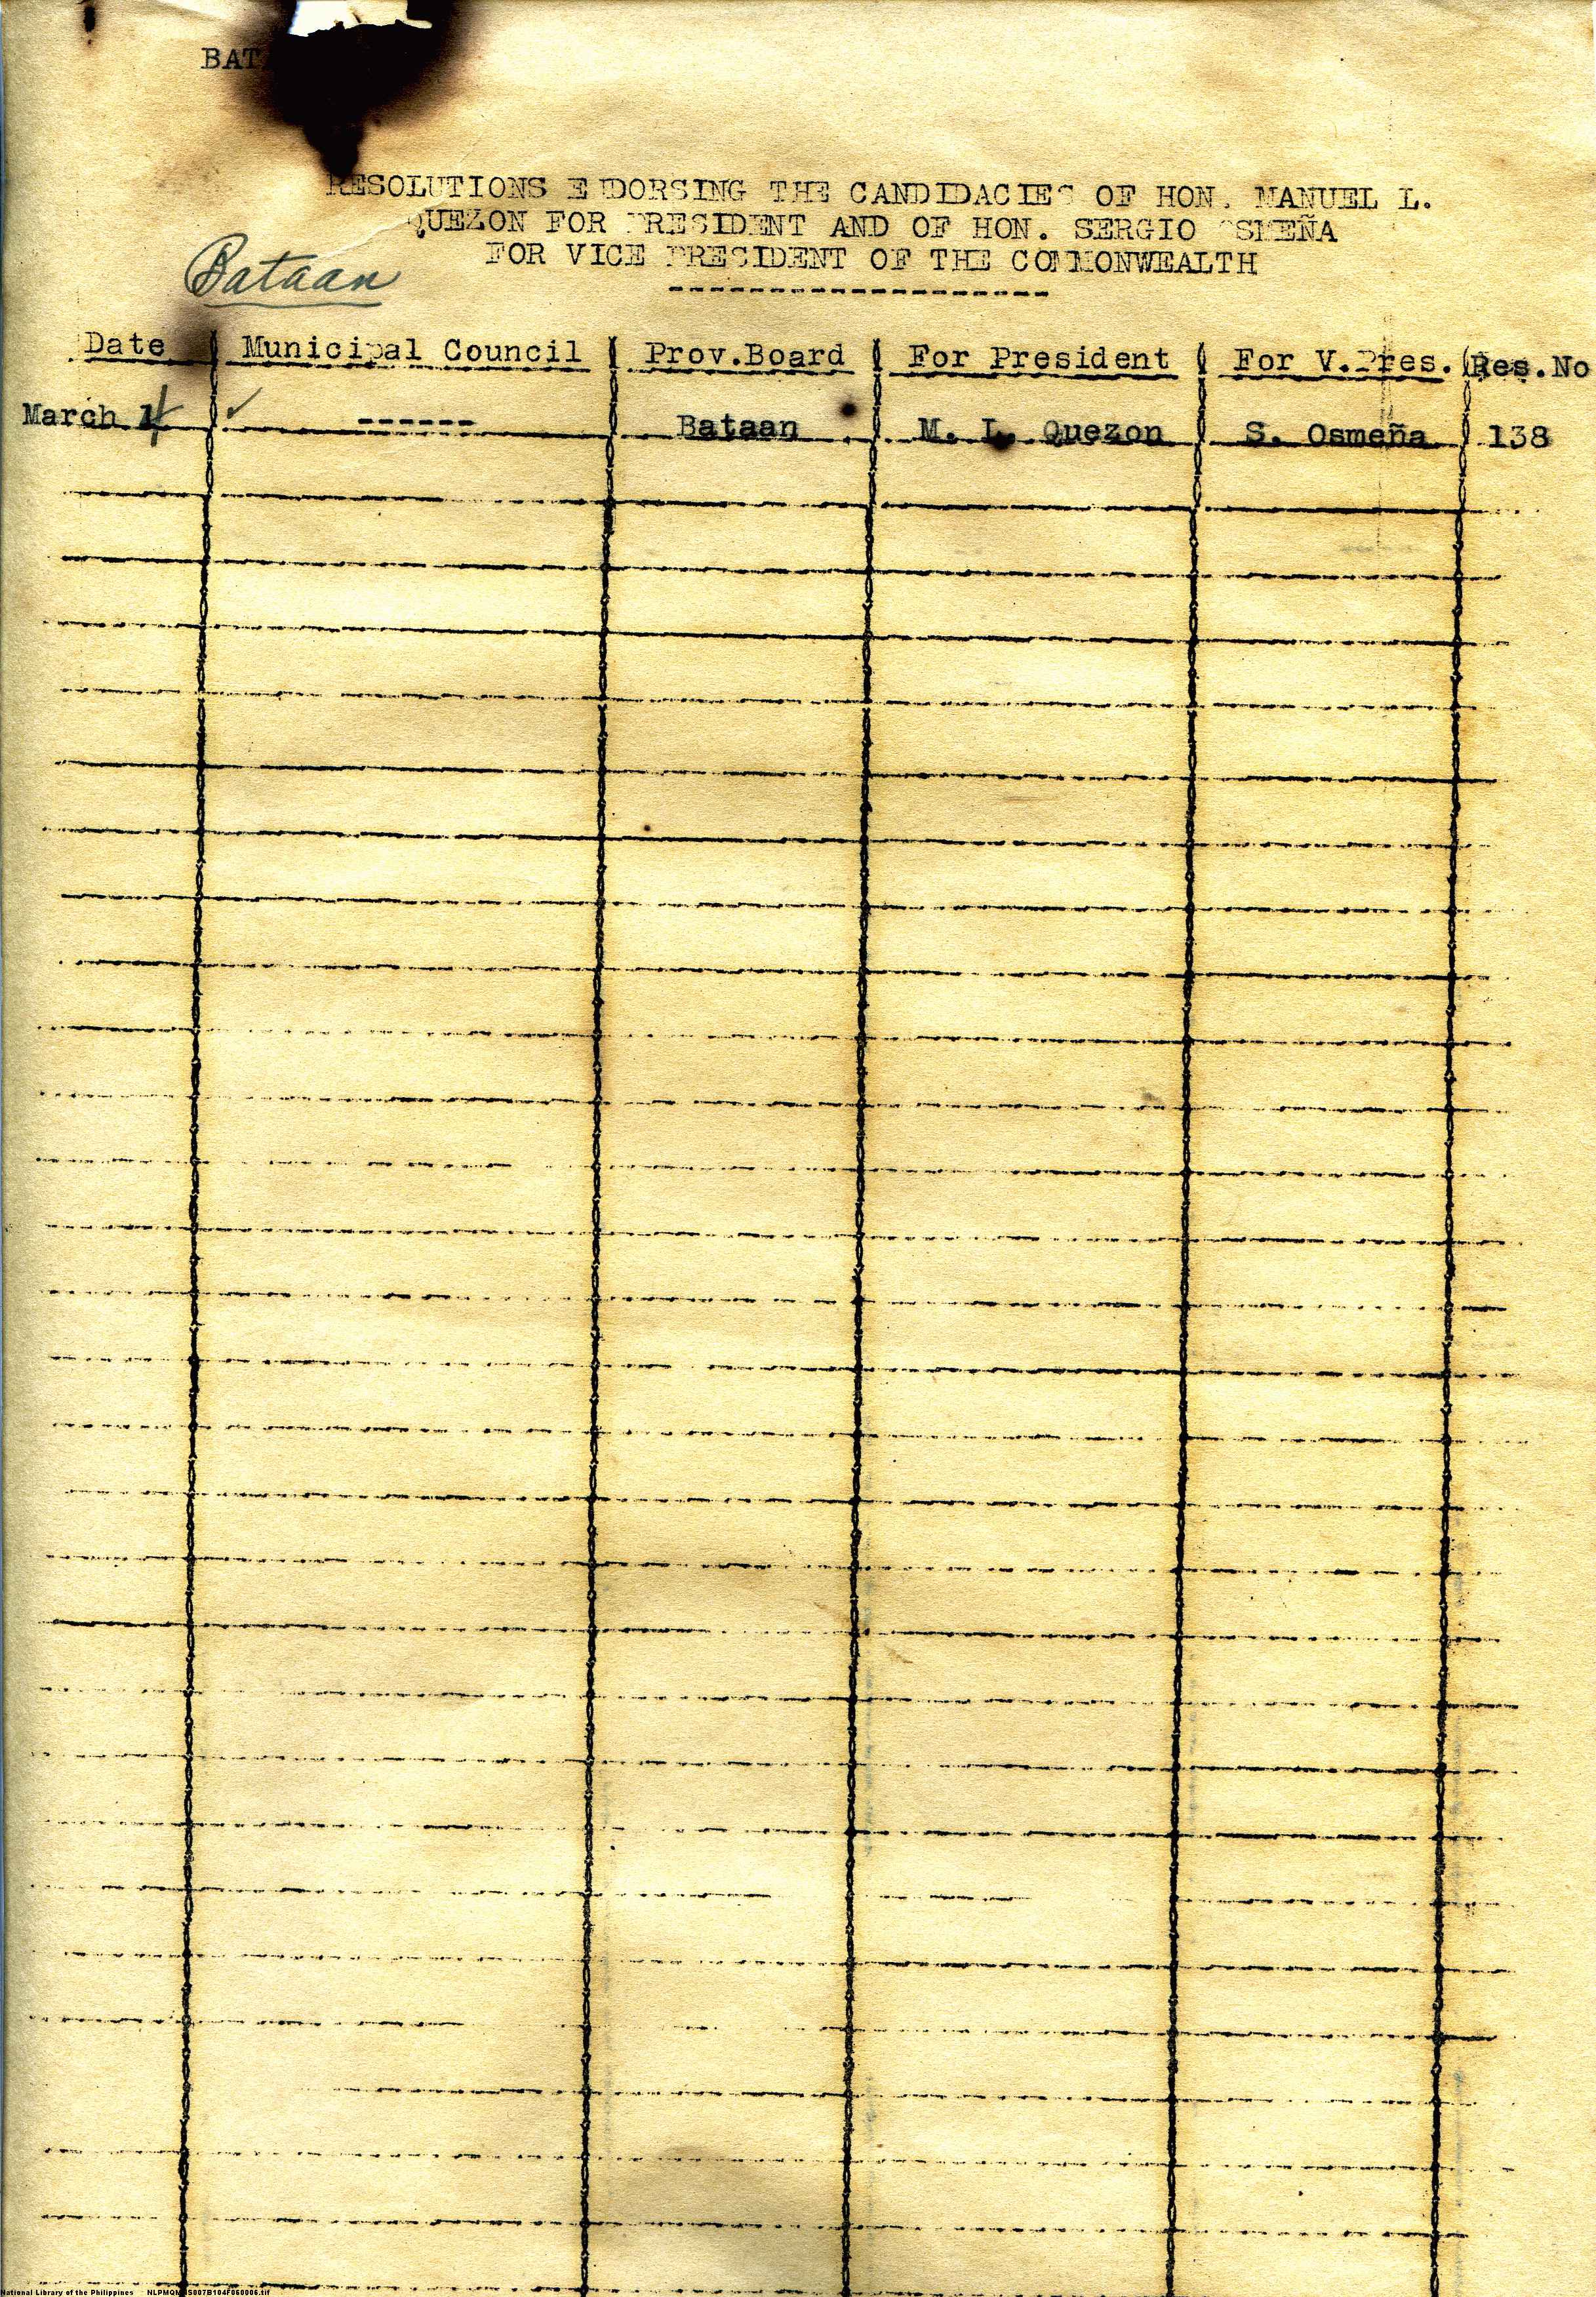 BAT
RESOLUTIONS ENDORSING THE CANDIDACIES OF HON. MANUEL L.
QUEZON FOR PRESIDENT AND OF HON. SERGIO OSMEÑA
FOR VICE PRESIDENT OF THE COMMONWEALTH
Bataan
Date Municipal Council Prov.Board For President For V.Pres. Res.No
March ------ Bataan M. L. Quezon S. Osmeña 138
National Library of the Philippines